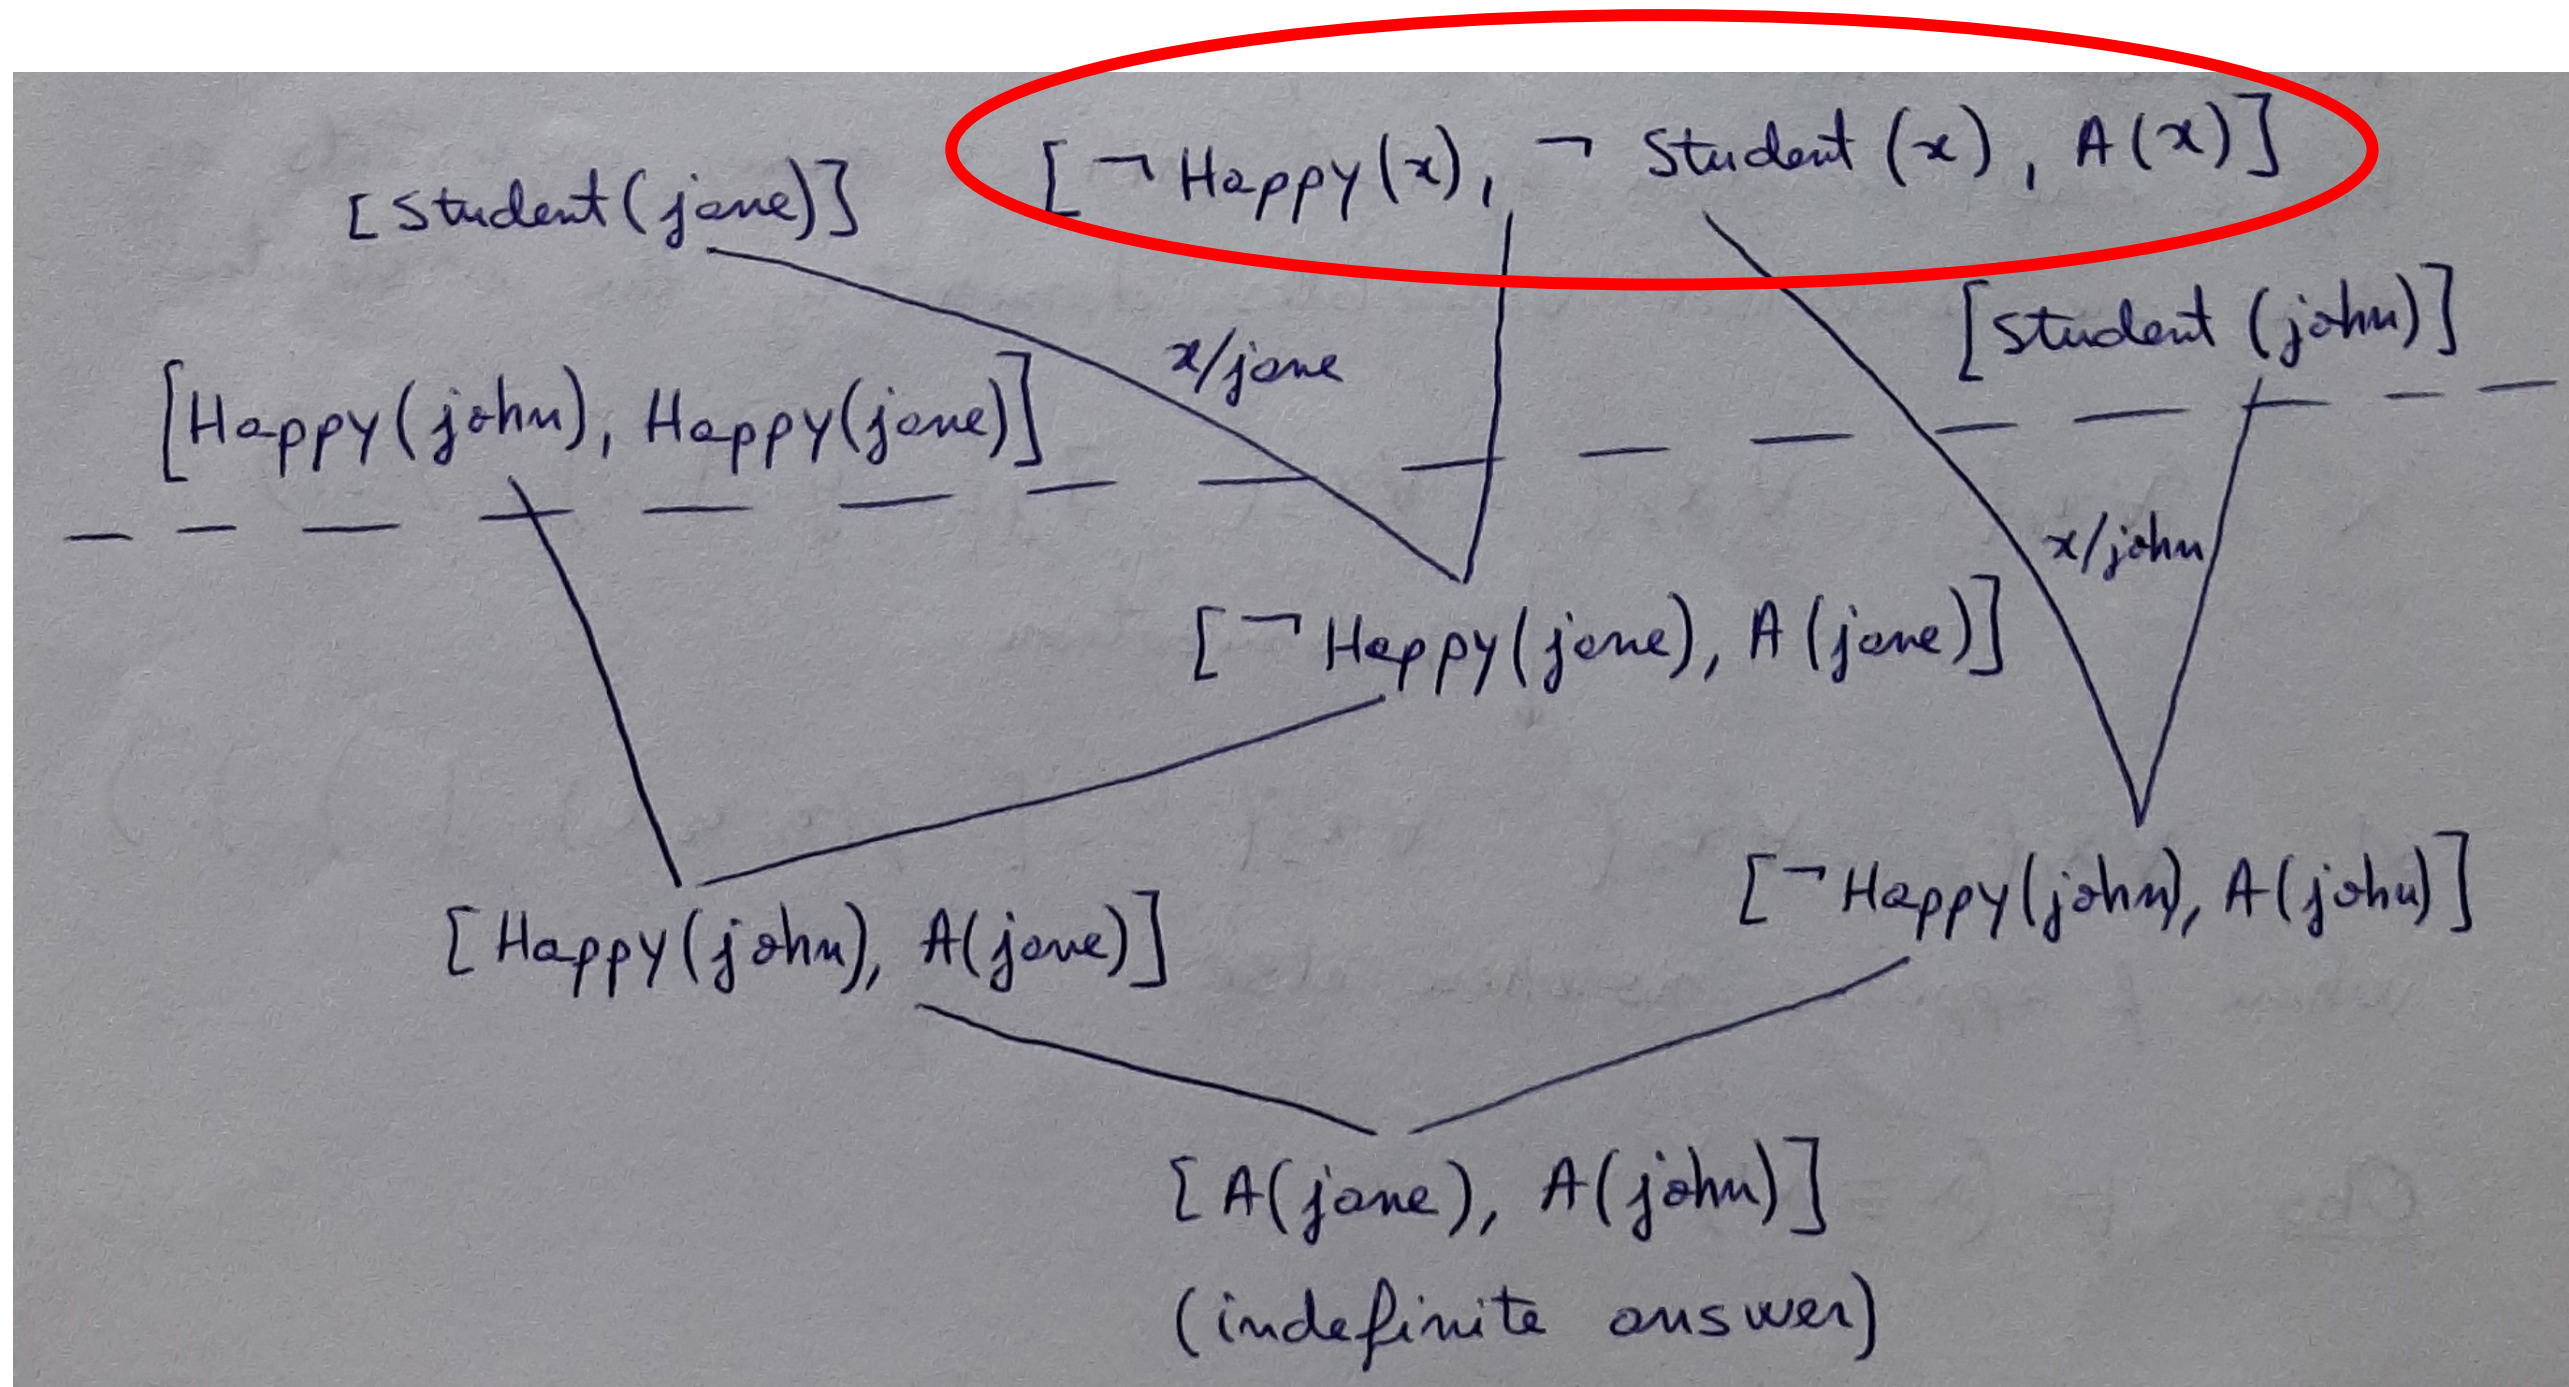 [Student(jane)] [¬Happy(x), ¬Student(x), A(x)]
[Student(john)]
x/jane
[Happy(john), Happy(jane)]
x/john
[¬Happy(jane), A(jane)]
[¬Happy(john), A(john)]
[Happy(john), A(jane)]
[A(jane), A(john)]
(indefinite answer)